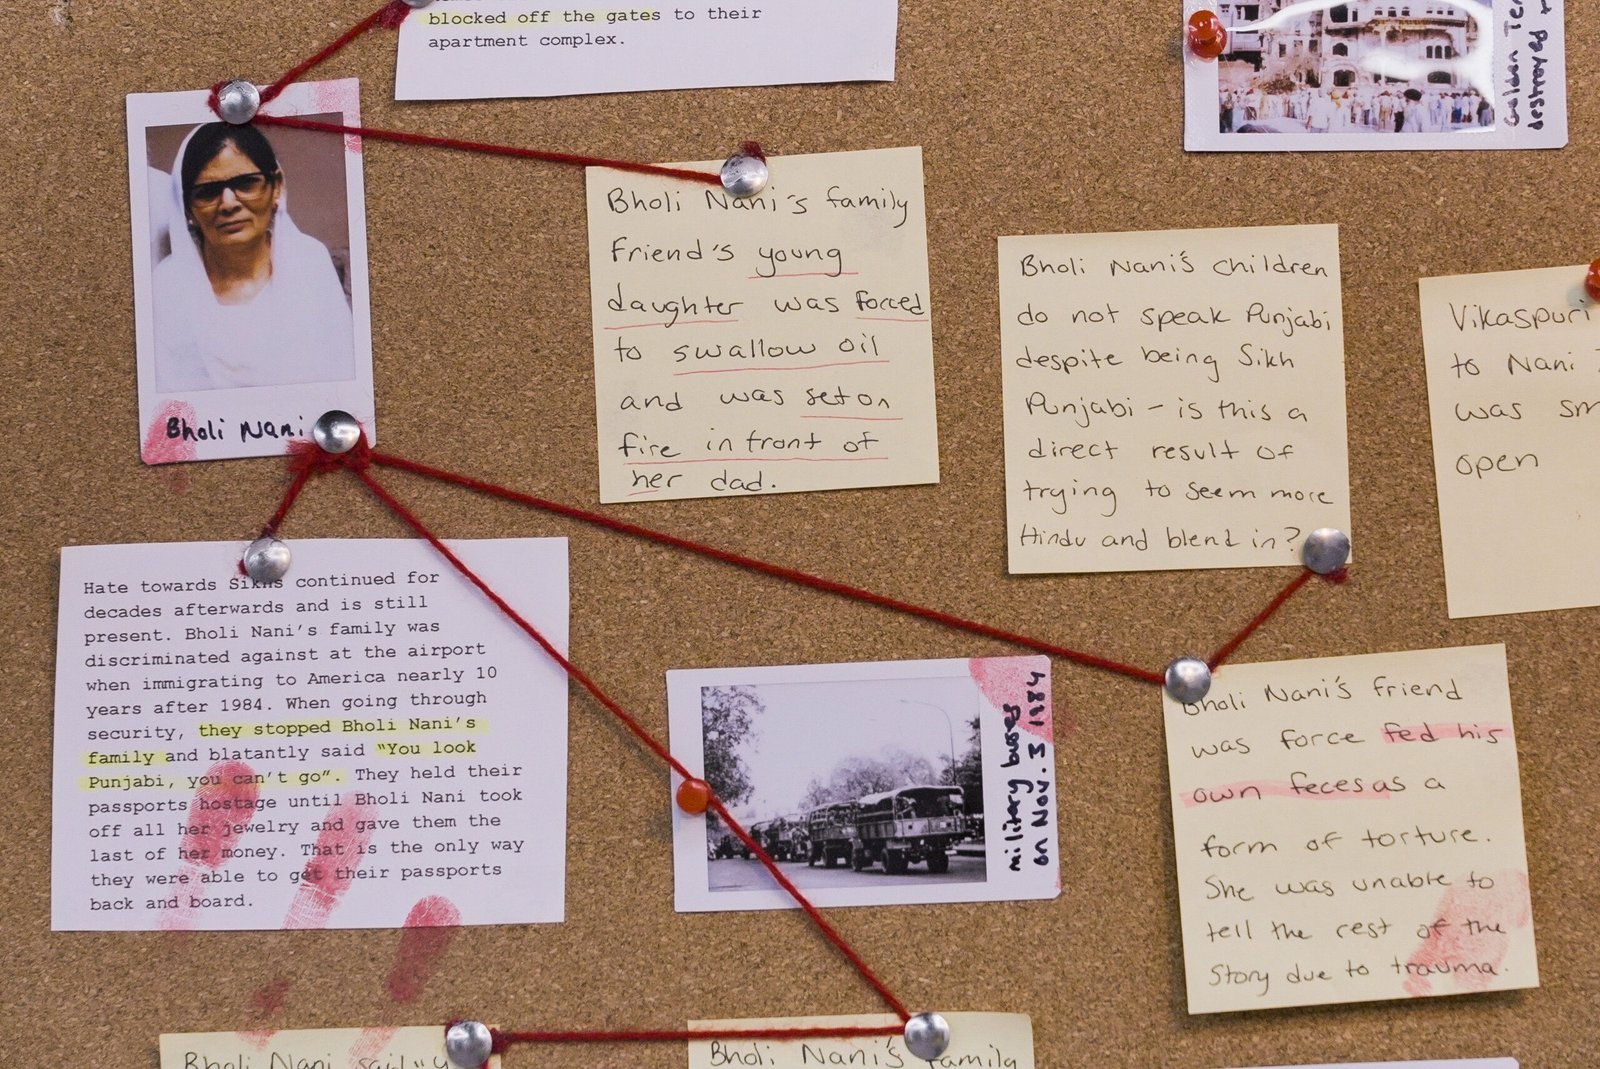 blocked off the gates to their
apartment complex.
Golden
destroyed
Bholi Nani
Bholi Nani's family
Friend's young
daughter was forced
to swallow oil
and was set on
fire in front of
her dad.
Bholi Nani's children
do not speak Punjabi
despite being Sikh
Punjabi - is this a
direct result of
trying to seem more
Hindu and blend in?
Vikaspuri
to Nani
was
open
Hate towards Sikhs continued for
decades afterwards and is still
present. Bholi Nani's family was
discriminated against at the airport
when immigrating to America nearly 10
years after 1984. When going through
security, they stopped Bholi Nani's
family and blatantly said "You look
Punjabi, you can't go". They held their
passports hostage until Bholi Nani took
off all her jewelry and gave them the
last of her money. That is the only way
they were able to get their passports
back and board.
military buses
on Nov. 3 1984
Bholi Nani's friend
was force fed his
own feces as a
form of torture.
She was unable to
tell the rest of the
story due to trauma.
Bholi Nani said
Bholi Nani's family